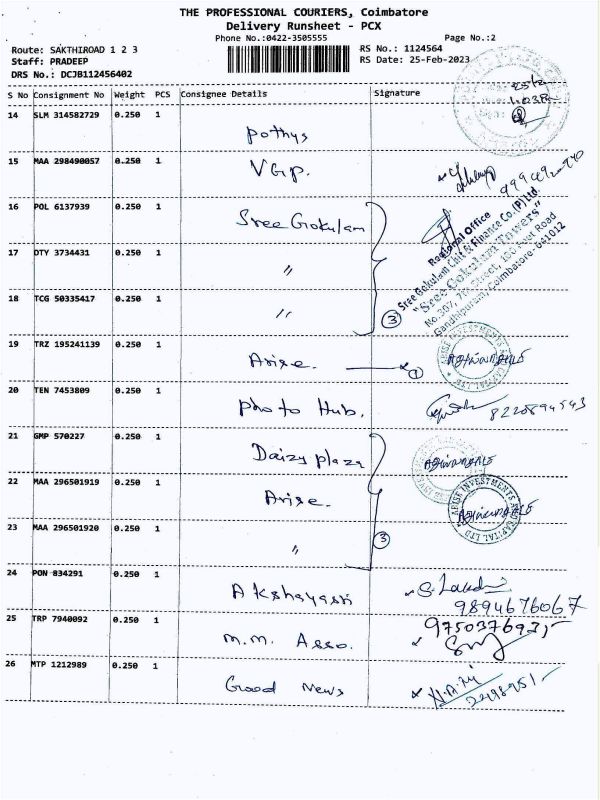 THE PROFESSIONAL COURIERS, Coimbatore
Delivery Runsheet - PCX
Phone No.:0422-3505555 Page No.:2
Route: SAKTHIROAD 1 2 3 RS No.: 1124564
Staff: PRADEEP RS Date: 25-Feb-2023
DRS No.: DCJB112456402
S No Consignment No Weight PCS Consignee Details Signature
14 SLM 314582729 0.250 1 Pothys
15 MAA 298490057 0.250 1 VGP.
16 POL 6137939 0.250 1 Sree Gokulam
17 DTY 3734431 0.250 1 〃
18 TCG 50335417 0.250 1 〃
③
Regional Office
Sree Gokulam Chit & Finance Co.(P) Ltd.
"Sree Gokulam Towers"
No.307, 7th Street, 100 Feet Road
Gandhipuram, Coimbatore-641012
19 TRZ 195241139 0.250 1 Arise. ①
ARISE INVESTMENTS AND CAPITAL LTD
20 TEN 7453809 0.250 1 Photo Hub. 8220894543
21 GMP 570227 0.250 1 Daizy plaza
22 MAA 296501919 0.250 1 Arise.
ARISE INVESTMENTS AND CAPITAL LTD
23 MAA 296501920 0.250 1 〃 ③
24 PON 834291 0.250 1 Akshayash
9894676067
25 TRP 7940092 0.250 1 M.M. Asso.
26 MTP 1212989 0.250 1 Good News